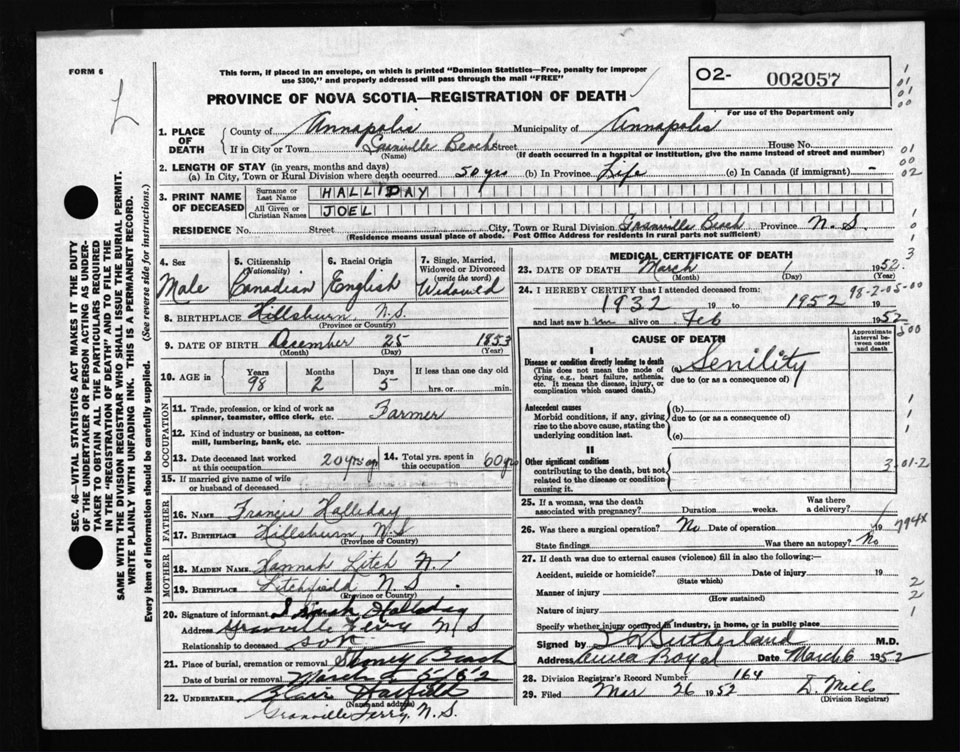 FORM 6
This form, if placed in an envelope, on which is printed "Dominion Statistics—Free, penalty for improper
use $300," and properly addressed will pass through the mail "FREE"
PROVINCE OF NOVA SCOTIA—REGISTRATION OF DEATH
02- 002057
For use of the Department only
SEC. 46—VITAL STATISTICS ACT MAKES IT THE DUTY
OF THE UNDERTAKER OR PERSON ACTING AS UNDER-
TAKER TO OBTAIN ALL THE PARTICULARS REQUIRED
IN THE "REGISTRATION OF DEATH" AND TO FILE THE
SAME WITH THE DIVISION REGISTRAR WHO SHALL ISSUE THE BURIAL PERMIT.
WRITE PLAINLY WITH UNFADING INK. THIS IS A PERMANENT RECORD.
Every item of information should be carefully supplied. (See reverse side for instructions.)
1. PLACE OF DEATH County of Annapolis Municipality of Annapolis
If in City or Town Granville Beach Street House No.
(Name) (If death occurred in a hospital or institution, give the name instead of street and number)
2. LENGTH OF STAY (in years, months and days)
(a) In City, Town or Rural Division where death occurred 50 yrs (b) In Province Life (c) In Canada (if immigrant) -
3. PRINT NAME OF DECEASED Surname or Last Name HALLIDAY
All Given or Christian Names JOEL
RESIDENCE No. Street City, Town or Rural Division Granville Beach Province N.S.
(Residence means usual place of abode. Post Office Address for residents in rural parts not sufficient)
4. Sex Male
5. Citizenship (Nationality) Canadian
6. Racial Origin English
7. Single, Married, Widowed or Divorced (write the word) Widowed
8. BIRTHPLACE Hillsburn, N.S.
(Province or Country)
9. DATE OF BIRTH December 25 1853
(Month) (Day) (Year)
10. AGE in Years 98 Months 2 Days 5 If less than one day old
hrs. or min.
OCCUPATION
11. Trade, profession, or kind of work as spinner, teamster, office clerk, etc. Farmer
12. Kind of industry or business, as cotton-mill, lumbering, bank, etc.
13. Date deceased last worked at this occupation 20 yrs ago 14. Total yrs. spent in this occupation 60 yrs
15. If married give name of wife or husband of deceased
FATHER
16. NAME Francis Halliday
17. BIRTHPLACE Hillsburn, N.S
(Province or Country)
MOTHER
18. MAIDEN NAME Hannah Litch
19. BIRTHPLACE Litchfield N.S
(Province or Country)
20. Signature of informant Halliday
Address Granville Ferry N S
Relationship to deceased son
21. Place of burial, cremation or removal Stoney Beach
Date of burial or removal March
22. UNDERTAKER Blair Hatfield
(Name and address)
Granville Ferry, N.S.
MEDICAL CERTIFICATE OF DEATH
23. DATE OF DEATH March 1 1952
(Month) (Day) (Year)
24. I HEREBY CERTIFY that I attended deceased from:
1932 19 to 1952 19
98-2-05-00
and last saw him alive on Feb 1952
CAUSE OF DEATH
Approximate interval between onset and death
I
Disease or condition directly leading to death
(This does not mean the mode of dying, e.g., heart failure, asthenia, etc. It means the disease, injury, or complication which caused death.)
(a) Senility
due to (or as a consequence of)
Antecedent causes
Morbid conditions, if any, giving rise to the above cause, stating the underlying condition last.
(b)
due to (or as a consequence of)
(c)
II
Other significant conditions
contributing to the death, but not related to the disease or condition causing it.
25. If a woman, was the death associated with pregnancy? Duration weeks. Was there a delivery?
26. Was there surgical operation? No Date of operation 19
794X
State findings Was there an autopsy? No
27. If death was due to external causes (violence) fill in also the following:—
Accident, suicide or homicide? Date of injury 19
(State which)
Manner of injury
(How sustained)
Nature of injury
Specify whether injury occurred in industry, in home, or in public place
Signed by Sutherland M.D.
Address Royal Date March 6 1952
28. Division Registrar's Record Number 164
29. Filed Mar 26 1952
(Division Registrar)